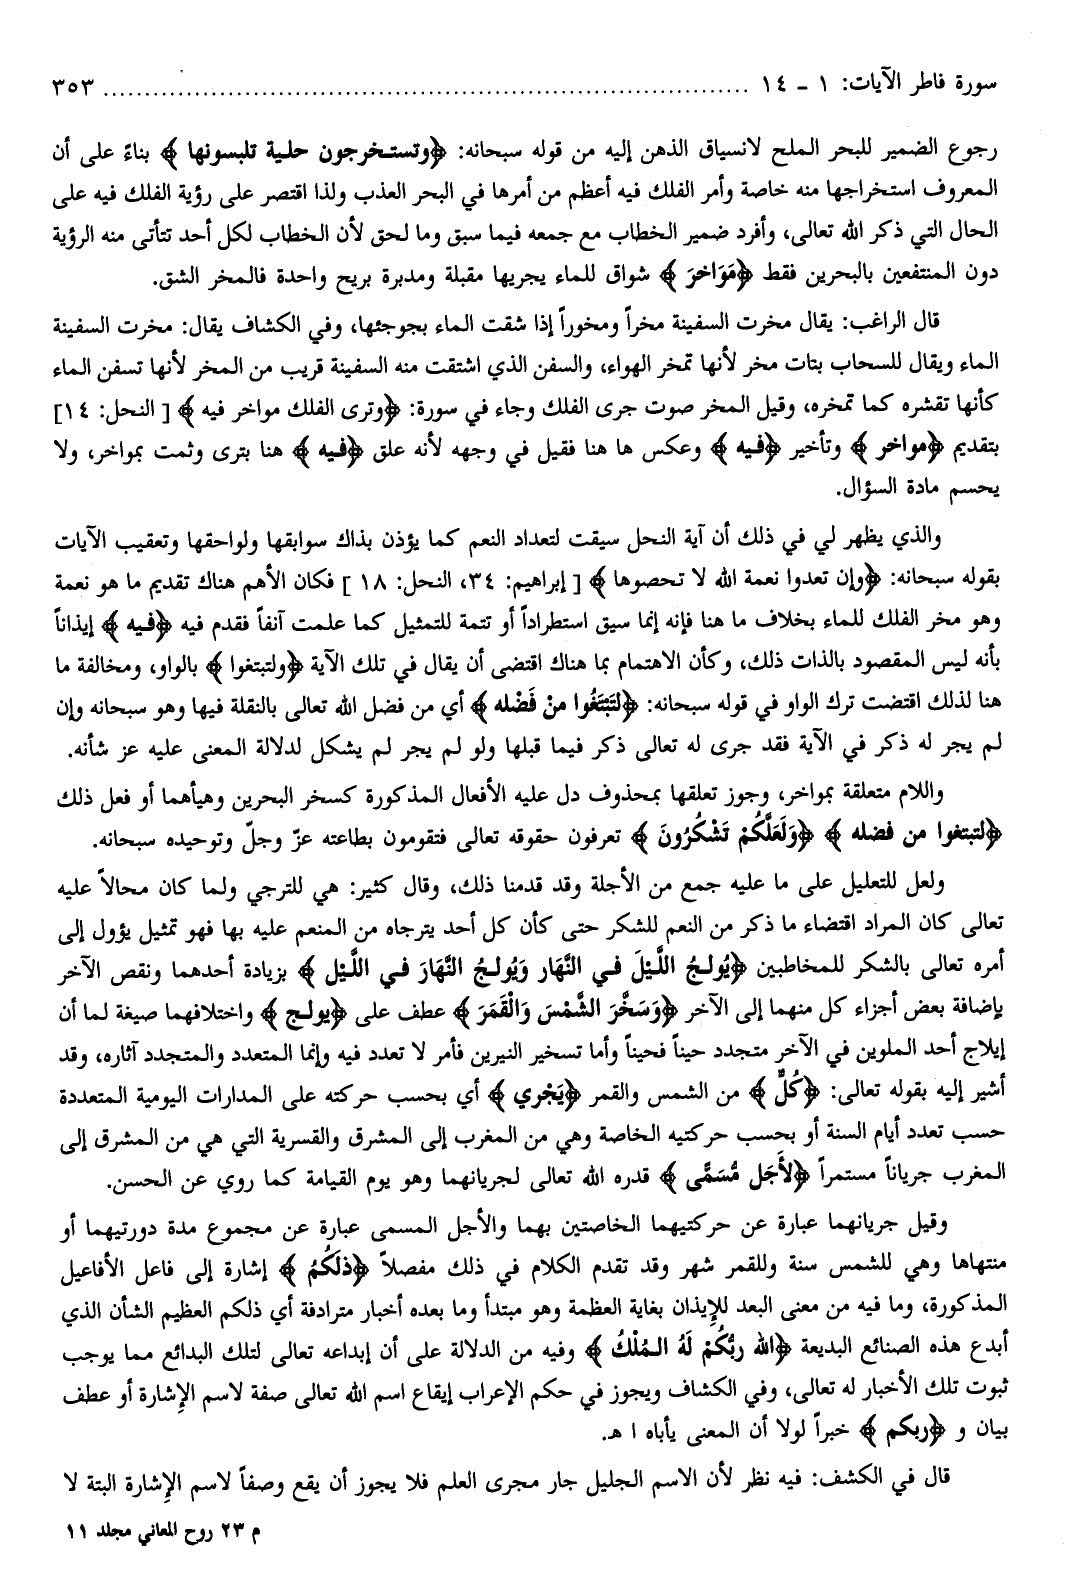 سورة فاطر الآيات: ١ ـ ١٤ ................................................................................ ٣٥٣
رجوع الضمير للبحر الملح لانسياق الذهن إليه من قوله سبحانه: ﴿وتستخرجون حلية تلبسونها﴾ بناءً على أن
المعروف استخراجها منه خاصة وأمر الفلك فيه أعظم من أمرها في البحر العذب ولذا اقتصر على رؤية الفلك فيه على
الحال التي ذكر الله تعالى، وأفرد ضمير الخطاب مع جمعه فيما سبق وما لحق لأن الخطاب لكل أحد تتأتى منه الرؤية
دون المنتفعين بالبحرين فقط ﴿مَوَاخرَ﴾ شواق للماء يجريها مقبلة ومدبرة بريح واحدة فالمخر الشق.
قال الراغب: يقال مخرت السفينة مخراً ومخوراً إذا شقت الماء بجوجئها، وفي الكشاف يقال: مخرت السفينة
الماء ويقال للسحاب بنات مخر لأنها تمخر الهواء، والسفن الذي اشتقت منه السفينة قريب من المخر لأنها تسفن الماء
كأنها تقشره كما تمخره، وقيل المخر صوت جرى الفلك وجاء في سورة: ﴿وترى الفلك مواخر فيه﴾ [ النحل: ١٤]
بتقديم ﴿مواخر﴾ وتأخير ﴿فيه﴾ وعكس ها هنا فقيل في وجهه لأنه علق ﴿فيه﴾ هنا بترى وثمت بمواخر، ولا
يحسم مادة السؤال.
والذي يظهر لي في ذلك أن آية النحل سيقت لتعداد النعم كما يؤذن بذاك سوابقها ولواحقها وتعقيب الآيات
بقوله سبحانه: ﴿وإن تعدوا نعمة الله لا تحصوها﴾ [ إبراهيم: ٣٤، النحل: ١٨ ] فكان الأهم هناك تقديم ما هو نعمة
وهو مخر الفلك للماء بخلاف ما هنا فإنه إنما سيق استطراداً أو تتمة للتمثيل كما علمت آنفاً فقدم فيه ﴿فيه﴾ إيذاناً
بأنه ليس المقصود بالذات ذلك، وكأن الاهتمام بما هناك اقتضى أن يقال في تلك الآية ﴿ولتبتغوا﴾ بالواو، ومخالفة ما
هنا لذلك اقتضت ترك الواو في قوله سبحانه: ﴿لتَبْتَغُوا منْ فَضْله﴾ أي من فضل الله تعالى بالنقلة فيها وهو سبحانه وإن
لم يجر له ذكر في الآية فقد جرى له تعالى ذكر فيما قبلها ولو لم يجر لم يشكل لدلالة المعنى عليه عز شأنه.
واللام متعلقة بمواخر، وجوز تعلقها بمحذوف دل عليه الأفعال المذكورة كسخر البحرين وهيأهما أو فعل ذلك
﴿لتبتغوا من فضله﴾ ﴿وَلَعَلَّكُمْ تَشْكُرُونَ﴾ تعرفون حقوقه تعالى فتقومون بطاعته عزّ وجلّ وتوحيده سبحانه.
ولعل للتعليل على ما عليه جمع من الأجلة وقد قدمنا ذلك، وقال كثير: هي للترجي ولما كان محالاً عليه
تعالى كان المراد اقتضاء ما ذكر من النعم للشكر حتى كأن كل أحد يترجاه من المنعم عليه بها فهو تمثيل يؤول إلى
أمره تعالى بالشكر للمخاطبين ﴿يُولجُ اللَّيْلَ في النَّهَار وَيُولجُ النَّهَارَ في اللَّيْل﴾ بزيادة أحدهما ونقص الآخر
بإضافة بعض أجزاء كل منهما إلى الآخر ﴿وَسَخَّرَ الشَّمْسَ وَالْقَمَرَ﴾ عطف على ﴿يولج﴾ واختلافهما صيغة لما أن
إيلاج أحد الملوين في الآخر متجدد حيناً فحيناً وأما تسخير النيرين فأمر لا تعدد فيه وإنما المتعدد والمتجدد آثاره، وقد
أشير إليه بقوله تعالى: ﴿كُلٌّ﴾ من الشمس والقمر ﴿يَجْري﴾ أي بحسب حركته على المدارات اليومية المتعددة
حسب تعدد أيام السنة أو بحسب حركتيه الخاصة وهي من المغرب إلى المشرق والقسرية التي هي من المشرق إلى
المغرب جرياناً مستمراً ﴿لأَجَل مُسَمًّى﴾ قدره الله تعالى لجريانهما وهو يوم القيامة كما روي عن الحسن.
وقيل جريانهما عبارة عن حركتيهما الخاصتين بهما والأجل المسمى عبارة عن مجموع مدة دورتيهما أو
منتهاها وهي للشمس سنة وللقمر شهر وقد تقدم الكلام في ذلك مفصلاً ﴿ذلَكُمُ﴾ إشارة إلى فاعل الأفاعيل
المذكورة، وما فيه من معنى البعد للإيذان بغاية العظمة وهو مبتدأ وما بعده أخبار مترادفة أي ذلكم العظيم الشأن الذي
أبدع هذه الصنائع البديعة ﴿الله ربُّكُمْ لَهُ المُلْكُ﴾ وفيه من الدلالة على أن إبداعه تعالى لتلك البدائع مما يوجب
ثبوت تلك الأخبار له تعالى، وفي الكشاف ويجوز في حكم الإعراب إيقاع اسم الله تعالى صفة لاسم الإشارة أو عطف
بيان و ﴿ربكم﴾ خبراً لولا أن المعنى يأباه ا هـ.
قال في الكشف: فيه نظر لأن الاسم الجليل جار مجرى العلم فلا يجوز أن يقع وصفاً لاسم الإشارة البتة لا
م ٢٣ روح المعاني مجلد ١١